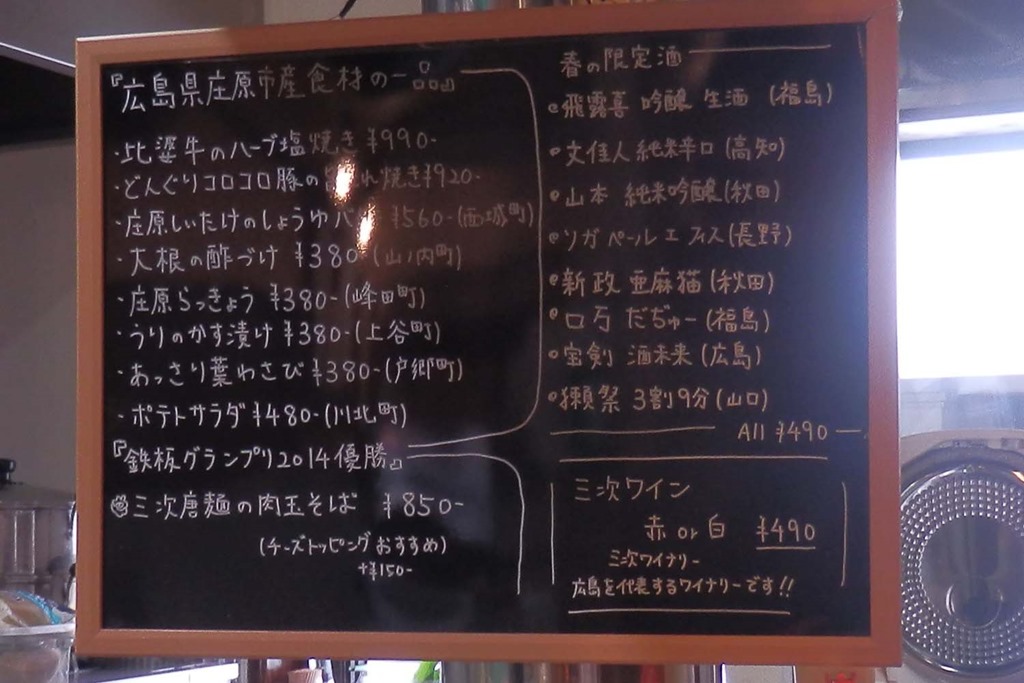 『広島県庄原市産食材の一品』
・比婆牛のハーブ塩焼き ¥990-
・どんぐりコロコロ豚の れ焼き¥920-
・庄原しいたけのしょうゆバ ¥560-(西城町)
・大根の酢づけ ¥380-(山ノ内町)
・庄原らっきょう ¥380-(峰田町)
・うりのかす漬け ¥380-(上谷町)
・あっさり葉わさび ¥380-(戸郷町)
・ポテトサラダ ¥480-(川北町)
『鉄板グランプリ2014優勝』
三次唐麺の肉玉そば ¥850-
(チーズトッピングおすすめ)
+¥150-
春の限定酒
飛露喜 吟醸 生酒 (福島)
文佳人 純米辛口 (高知)
山本 純米吟醸(秋田)
ソガ ペール エ フィス(長野)
新政 亜麻猫 (秋田)
ロ万 だぢゅー (福島)
宝剣 酒未来 (広島)
獺祭 3割9分 (山口)
All ¥490-
三次ワイン
赤 or 白 ¥490
三次ワイナリー
広島を代表するワイナリーです!!